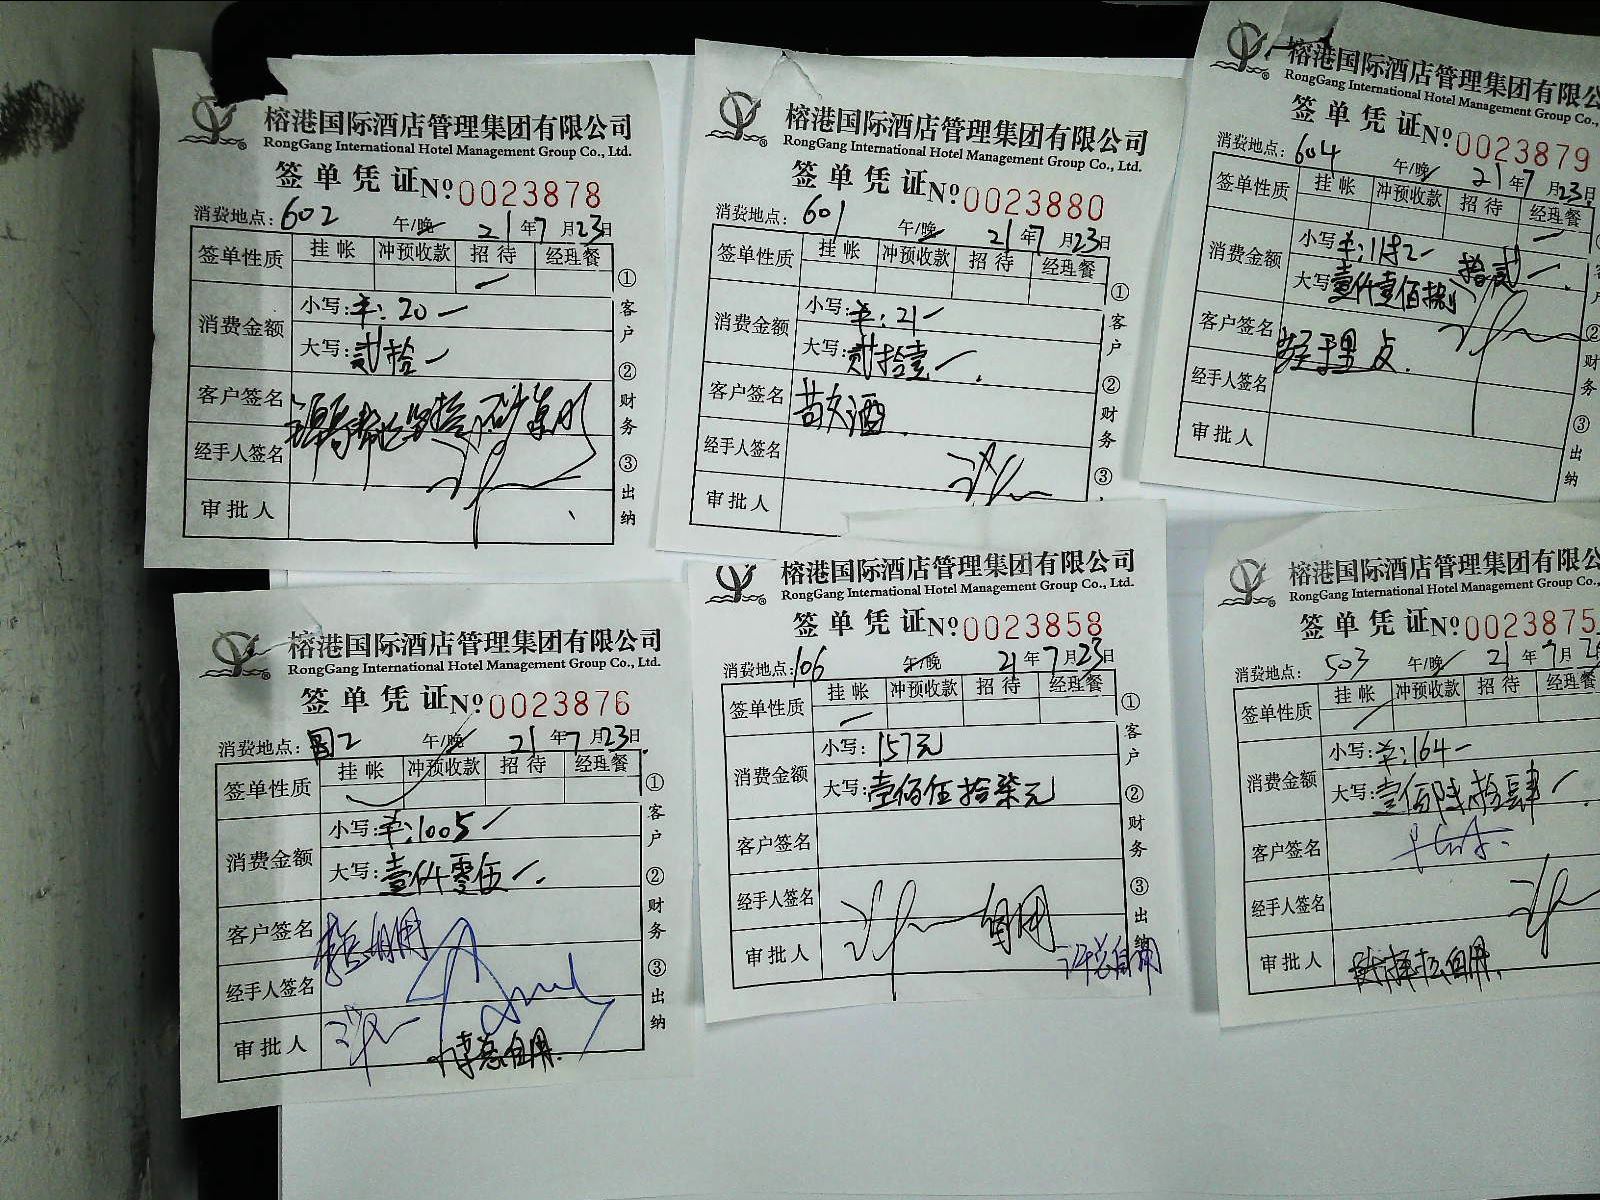 榕港国际酒店管理集团有限公司
RongGang International Hotel Management Group Co., Ltd.
签单凭证 № 0023878
消费地点: 602 午/晚 21年7月23日
签单性质 挂帐 冲预收款 招待 经理餐
消费金额 小写: 20
大写: 贰拾
客户签名
经手人签名
审批人
①客户 ②财务 ③出纳
榕港国际酒店管理集团有限公司
RongGang International Hotel Management Group Co., Ltd.
签单凭证 № 0023880
消费地点: 601 午/晚 21年7月23日
签单性质 挂帐 冲预收款 招待 经理餐
消费金额 小写: 21
大写: 贰拾壹
客户签名
经手人签名
审批人
①客户 ②财务 ③
榕港国际酒店管理集团有限公
RongGang International Hotel Management Group Co.,
签单凭证 № 0023879
消费地点: 604 午/晚 21年7月23日
签单性质 挂帐 冲预收款 招待 经理餐
消费金额 小写: 1182
大写: 壹仟壹佰捌拾贰
客户签名
经手人签名
审批人
②财务 ③出纳
榕港国际酒店管理集团有限公司
RongGang International Hotel Management Group Co., Ltd.
签单凭证 № 0023876
消费地点: 园2 午/晚 21年7月23日
签单性质 挂帐 冲预收款 招待 经理餐
消费金额 小写: 1005
大写: 壹仟零伍
客户签名 自用
经手人签名
审批人 自用
①客户 ②财务 ③出纳
榕港国际酒店管理集团有限公司
RongGang International Hotel Management Group Co., Ltd.
签单凭证 № 0023858
消费地点: 106 午/晚 21年7月23日
签单性质 挂帐 冲预收款 招待 经理餐
消费金额 小写: 157元
大写: 壹佰伍拾柒元
客户签名
经手人签名 自用
审批人 许总自用
①客户 ②财务 ③出纳
榕港国际酒店管理集团有限公
RongGang International Hotel Management Group Co.,
签单凭证 № 0023875
消费地点: 503 午/晚 21年7月
签单性质 挂帐 冲预收款 招待 经理餐
消费金额 小写: 164
大写: 壹佰陆拾肆
客户签名
经手人签名
审批人 自用